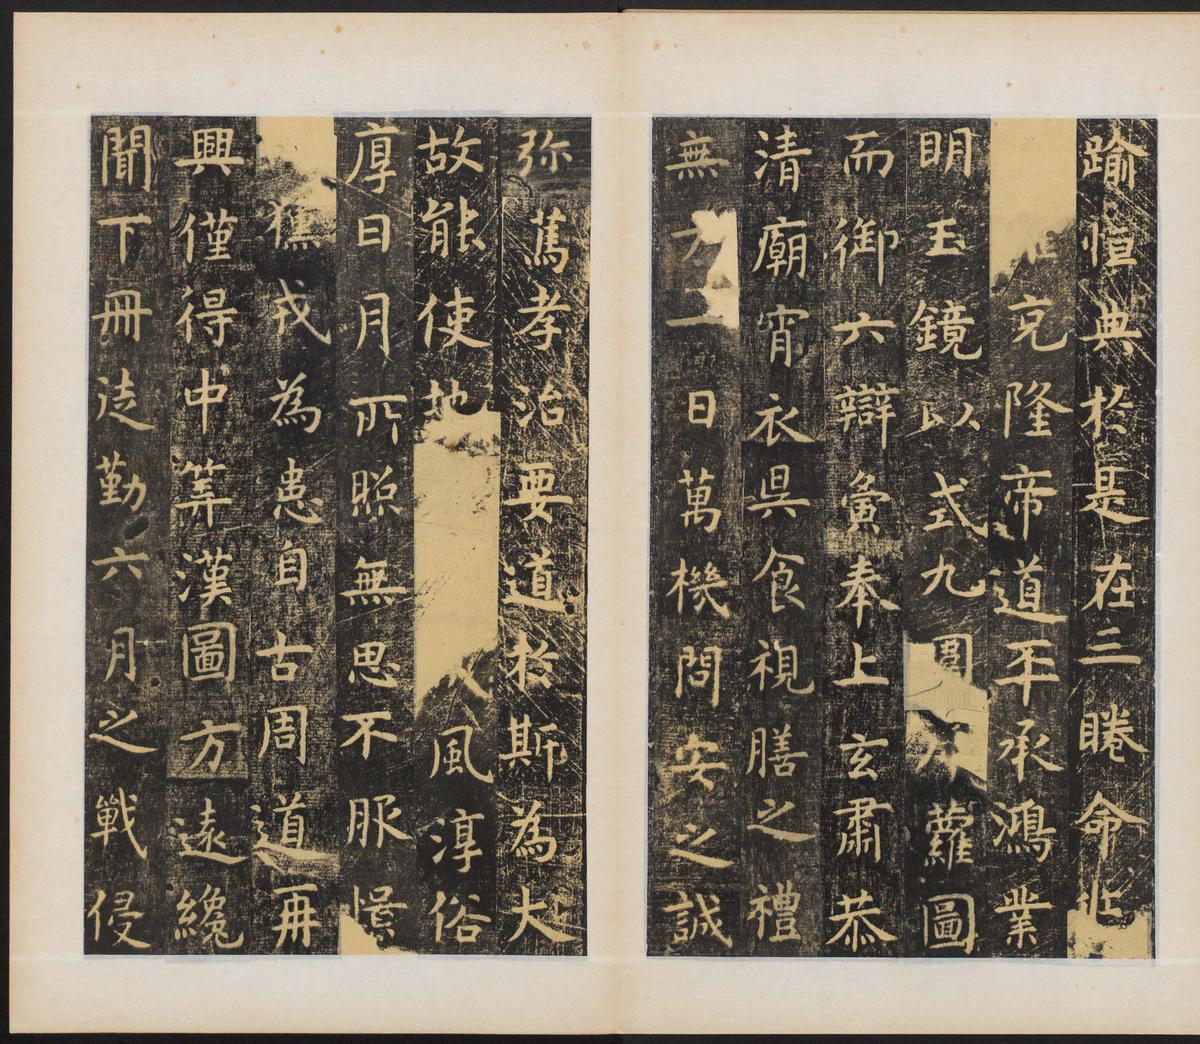 踰恒典於是在三睠命兆
克隆帝道丕承鴻業
明玉鏡以式九圍蘿圖
而御六辯夤奉上玄肅恭
清廟宵衣昃食視膳之禮
無方一日萬機問安之誠
弥篤孝治要道於斯為大
故能使地風淳俗
厚日月所照無思不服憬
獯戎為患自古周道再
興僅得中筭漢圖方遠纔
聞下冊徒勤六月之戰侵